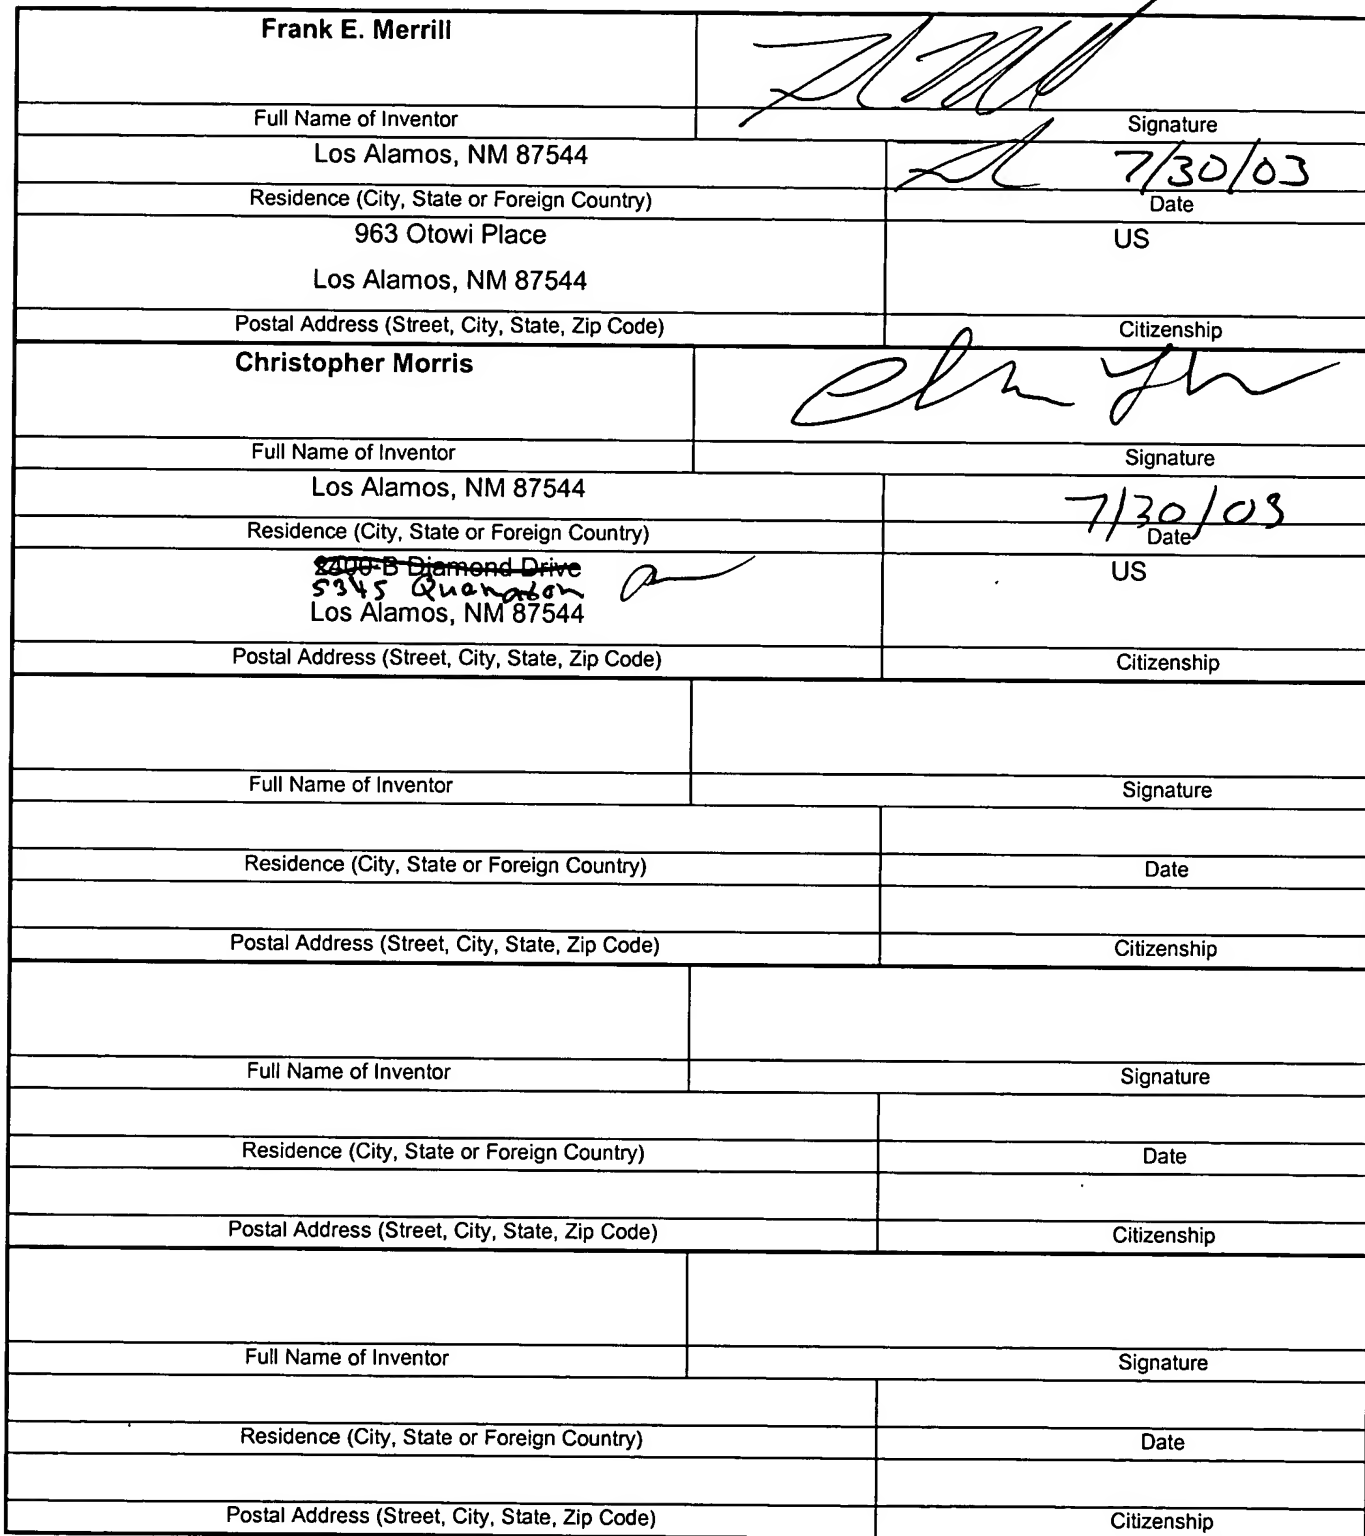 Frank E. Merrill
Full Name of Inventor
Signature
Los Alamos, NM 87544
7/30/03
Residence (City, State or Foreign Country)
Date
963 Otowi Place
US
Los Alamos, NM 87544
Postal Address (Street, City, State, Zip Code)
Citizenship
Christopher Morris
Full Name of Inventor
Signature
Los Alamos, NM 87544
7/30/03
Residence (City, State or Foreign Country)
Date
B Diamond Drive
US
5345
Los Alamos, NM 87544
Postal Address (Street, City, State, Zip Code)
Citizenship
Full Name of Inventor
Signature
Residence (City, State or Foreign Country)
Date
Postal Address (Street, City, State, Zip Code)
Citizenship
Full Name of Inventor
Signature
Residence (City, State or Foreign Country)
Date
Postal Address (Street, City, State, Zip Code)
Citizenship
Full Name of Inventor
Signature
Residence (City, State or Foreign Country)
Date
Postal Address (Street, City, State, Zip Code)
Citizenship